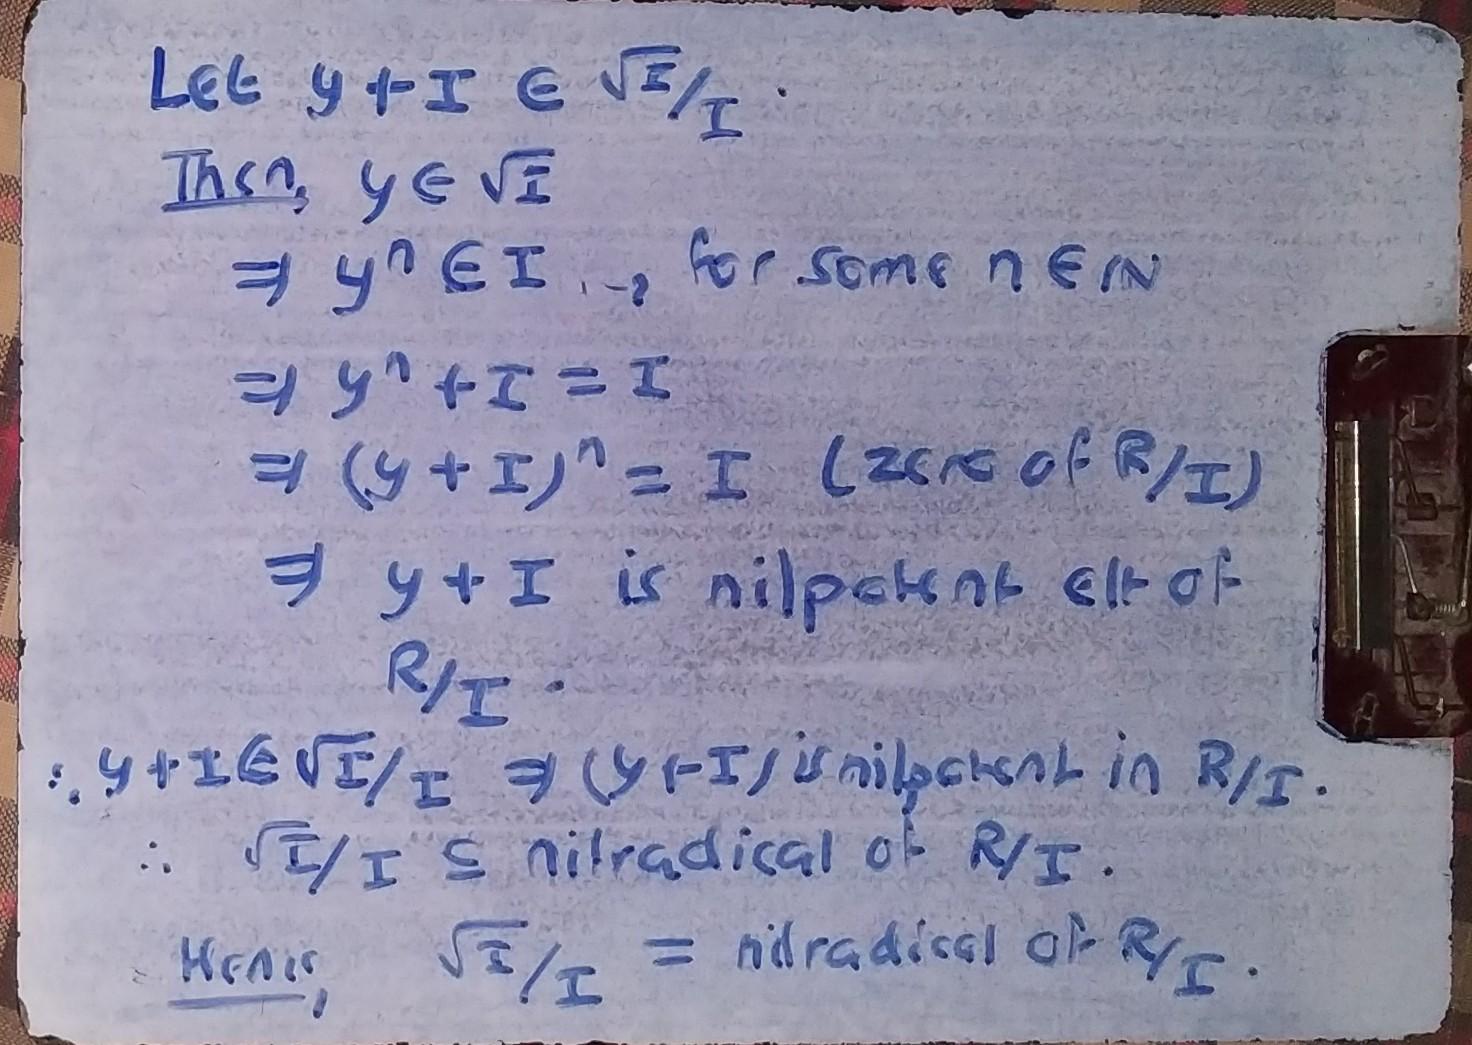 Let y + I ∈ √I/I .
Then, y ∈ √I
⇒ yⁿ ∈ I , for some n ∈ ℕ
⇒ yⁿ + I = I
⇒ (y + I)ⁿ = I (zero of R/I)
⇒ y + I is nilpotent elt of
R/I .
∴ y + I ∈ √I/I ⇒ (y + I) is nilpotent in R/I .
∴ √I/I ⊆ nilradical of R/I .
Hence, √I/I = nilradical of R/I .